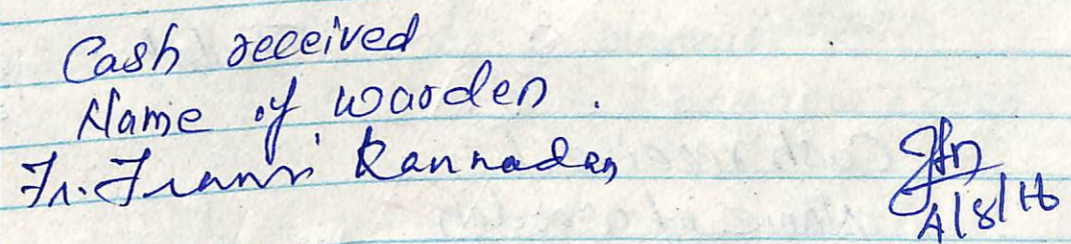 Cash received
Name of warden.
Fr. Frans. Kannadan
4/8/16